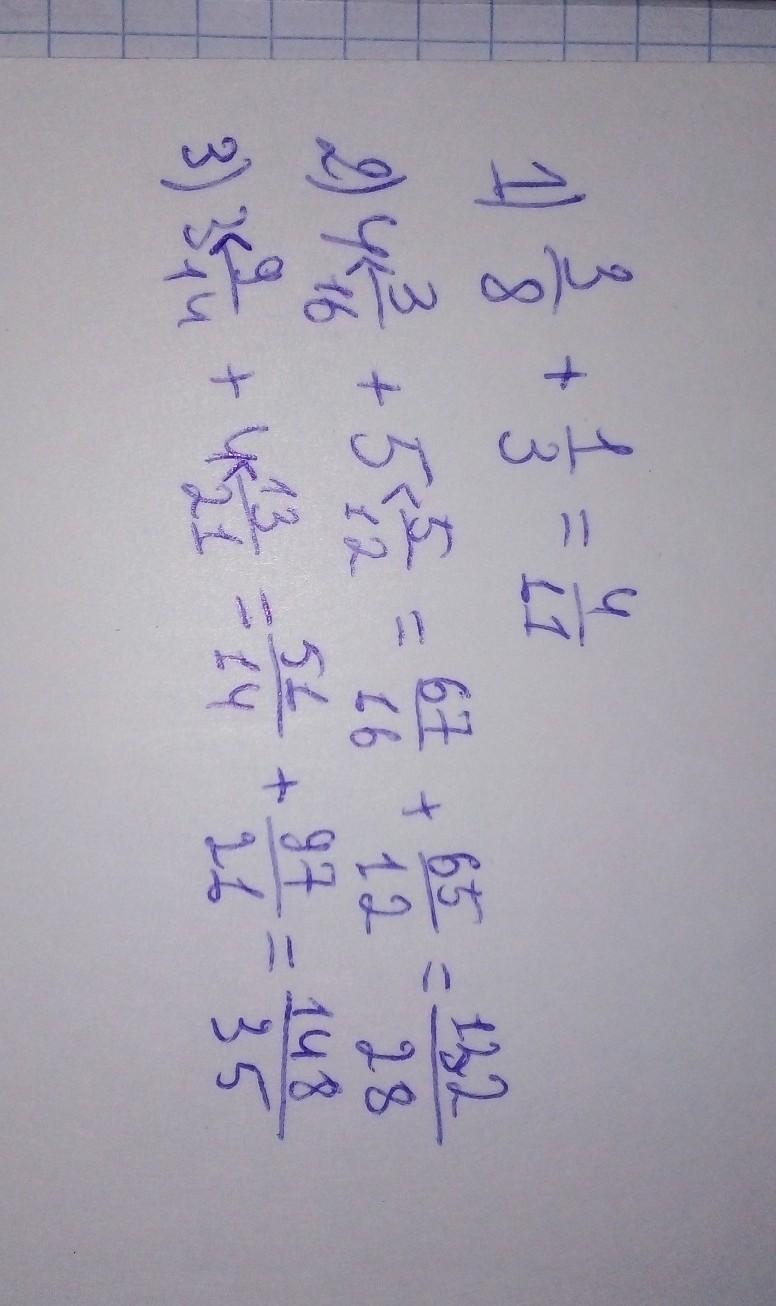 1) 3/8 + 1/3 = 4/11
2) 4 < 3/16 + 5 < 5/12 = 67/16 + 65/12 = 132/28
3) 3 < 9/14 + 4 < 13/21 = 51/14 + 97/21 = 148/35